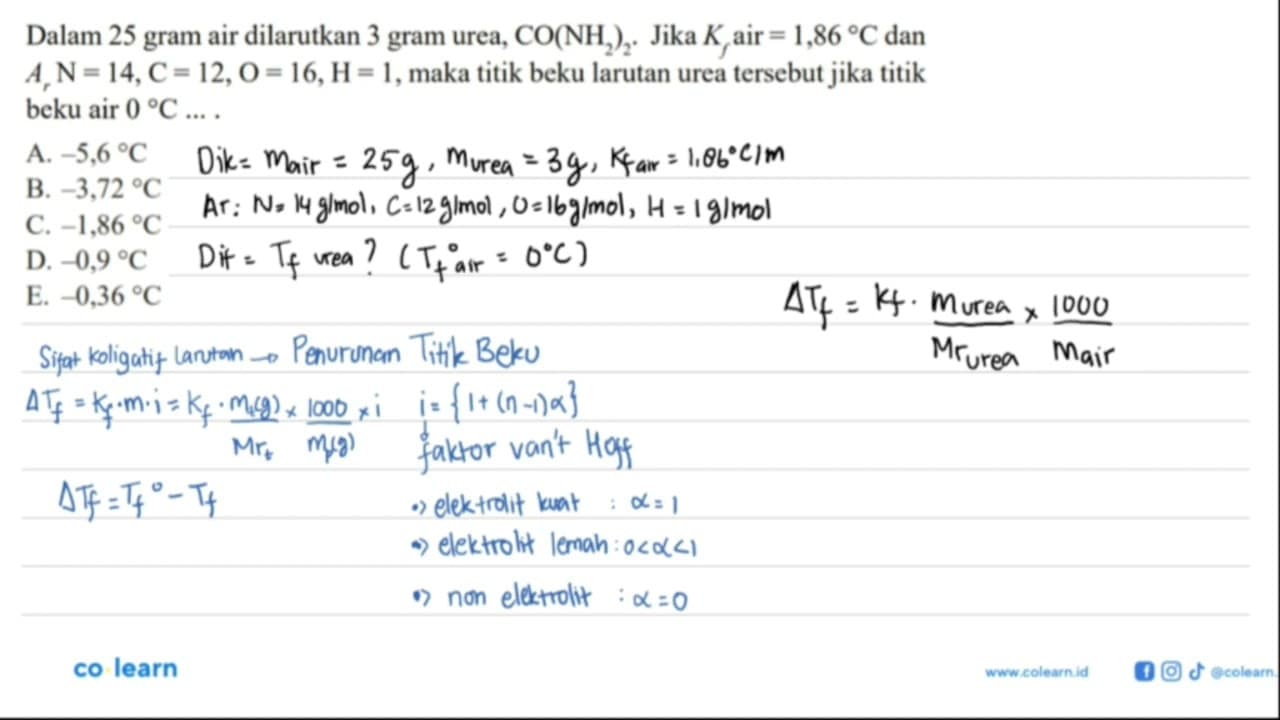 Dalam 25 gram air dilarutkan 3 gram urea, CO(NH₂)₂. Jika K_f air = 1,86 °C dan
A_r N = 14, C = 12, O = 16, H = 1, maka titik beku larutan urea tersebut jika titik
beku air 0 °C ... .
A. –5,6 °C
B. –3,72 °C
C. –1,86 °C
D. –0,9 °C
E. –0,36 °C
Dik = m air = 25g, m urea = 3g, Kf air = 1,86°C/m
Ar: N = 14 g/mol, C = 12 g/mol, O = 16g/mol, H = 1 g/mol
Dit = Tf urea? (Tf° air = 0°C)
ΔTf = Kf . m urea / Mr urea x 1000 / m air
Sifat koligatif larutan → Penurunan Titik Beku
ΔTf = Kf . m . i = Kf . m₁(g) / Mrt x 1000 / mp(g) x i
i = {1 + (n-1)α}
faktor van't Hoff
ΔTf = Tf° - Tf
•) elektrolit kuat : α = 1
•) elektrolit lemah : 0<α<1
•) non elektrolit : α = 0
co learn
www.colearn.id
@colearn.